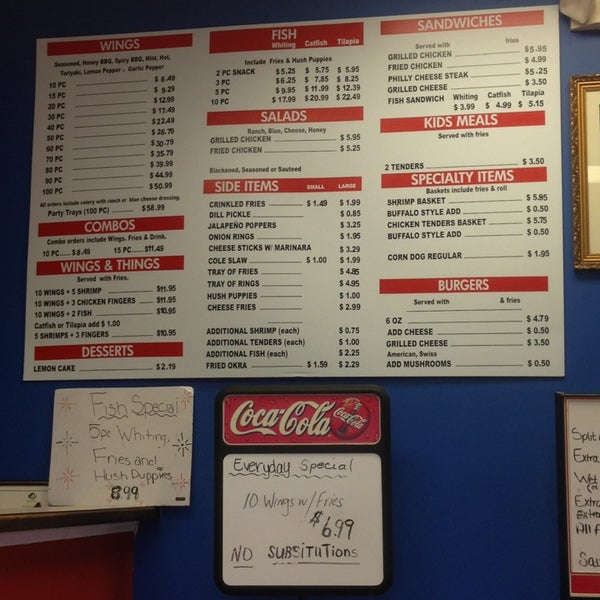 WINGS
Seasoned, Honey BBQ, Spicy BBQ, Mild, Hot,
Teriyaki, Lemon Pepper , Garlic Pepper
10 PC $ 6.49
15 PC $ 9.29
20 PC $ 12.99
30 PC $ 17.49
40 PC $ 22.49
50 PC $ 26.79
60 PC $ 30.79
70 PC $ 35.79
80 PC $ 39.99
90 PC $ 44.99
100 PC $ 50.99
All orders include celery with ranch or blue cheese dressing.
Party Trays (100 PC) $ 58.99
COMBOS
Combo orders include Wings, Fries & Drink.
10 PC $ 8.49 15 PC $11.49
WINGS & THINGS
Served with Fries.
10 WINGS + 5 SHRIMP $11.95
10 WINGS + 3 CHICKEN FINGERS $11.95
10 WINGS + 2 FISH $10.95
Catfish or Tilapia add $ 1.00
5 SHRIMPS + 3 FINGERS $10.95
DESSERTS
LEMON CAKE $ 2.19
FISH
Whiting Catfish Tilapia
Include Fries & Hush Puppies
2 PC SNACK $ 5.25 $ 5.75 $ 5.95
3 PC $ 6.25 $ 7.85 $ 8.25
5 PC $ 9.95 $ 11.99 $ 12.39
10 PC $ 17.99 $ 20.99 $ 22.49
SALADS
Ranch, Blue, Cheese, Honey
GRILLED CHICKEN $ 5.95
FRIED CHICKEN $ 5.25
Blackened, Seasoned or Sauteed
SIDE ITEMS SMALL LARGE
CRINKLED FRIES $ 1.49 $ 1.99
DILL PICKLE $ 0.85
JALAPEÑO POPPERS $ 3.25
ONION RINGS $ 1.95
CHEESE STICKS W/ MARINARA $ 3.29
COLE SLAW $ 1.00 $ 1.99
TRAY OF FRIES $ 4.85
TRAY OF RINGS $ 4.95
HUSH PUPPIES $ 1.00
CHEESE FRIES $ 2.99
ADDITIONAL SHRIMP (each) $ 0.75
ADDITIONAL TENDERS (each) $ 1.00
ADDITIONAL FISH (each) $ 2.25
FRIED OKRA $ 1.59 $ 2.29
SANDWICHES
Served with fries
GRILLED CHICKEN $ 5.95
FRIED CHICKEN $ 4.99
PHILLY CHEESE STEAK $ 5.25
GRILLED CHEESE $ 3.50
Whiting Catfish Tilapia
FISH SANDWICH $ 3.99 $ 4.99 $ 5.15
KIDS MEALS
Served with fries
2 TENDERS $ 3.50
SPECIALTY ITEMS
Baskets include fries & roll
SHRIMP BASKET $ 5.95
BUFFALO STYLE ADD $ 0.50
CHICKEN TENDERS BASKET $ 5.75
BUFFALO STYLE ADD $ 0.50
CORN DOG REGULAR $ 1.95
BURGERS
Served with & fries
6 OZ $ 4.79
ADD CHEESE $ 0.50
GRILLED CHEESE $ 3.50
American, Swiss
ADD MUSHROOMS $ 0.50
Fish Special
5pc Whiting,
Fries and
Hush Puppies
8.99
Coca-Cola
Coca-Cola
Everyday Special
10 Wings w/Fries
$6.99
NO SUBSITUTIONS
Split
Extra
Wet
Extra
Extra
All f
Sau